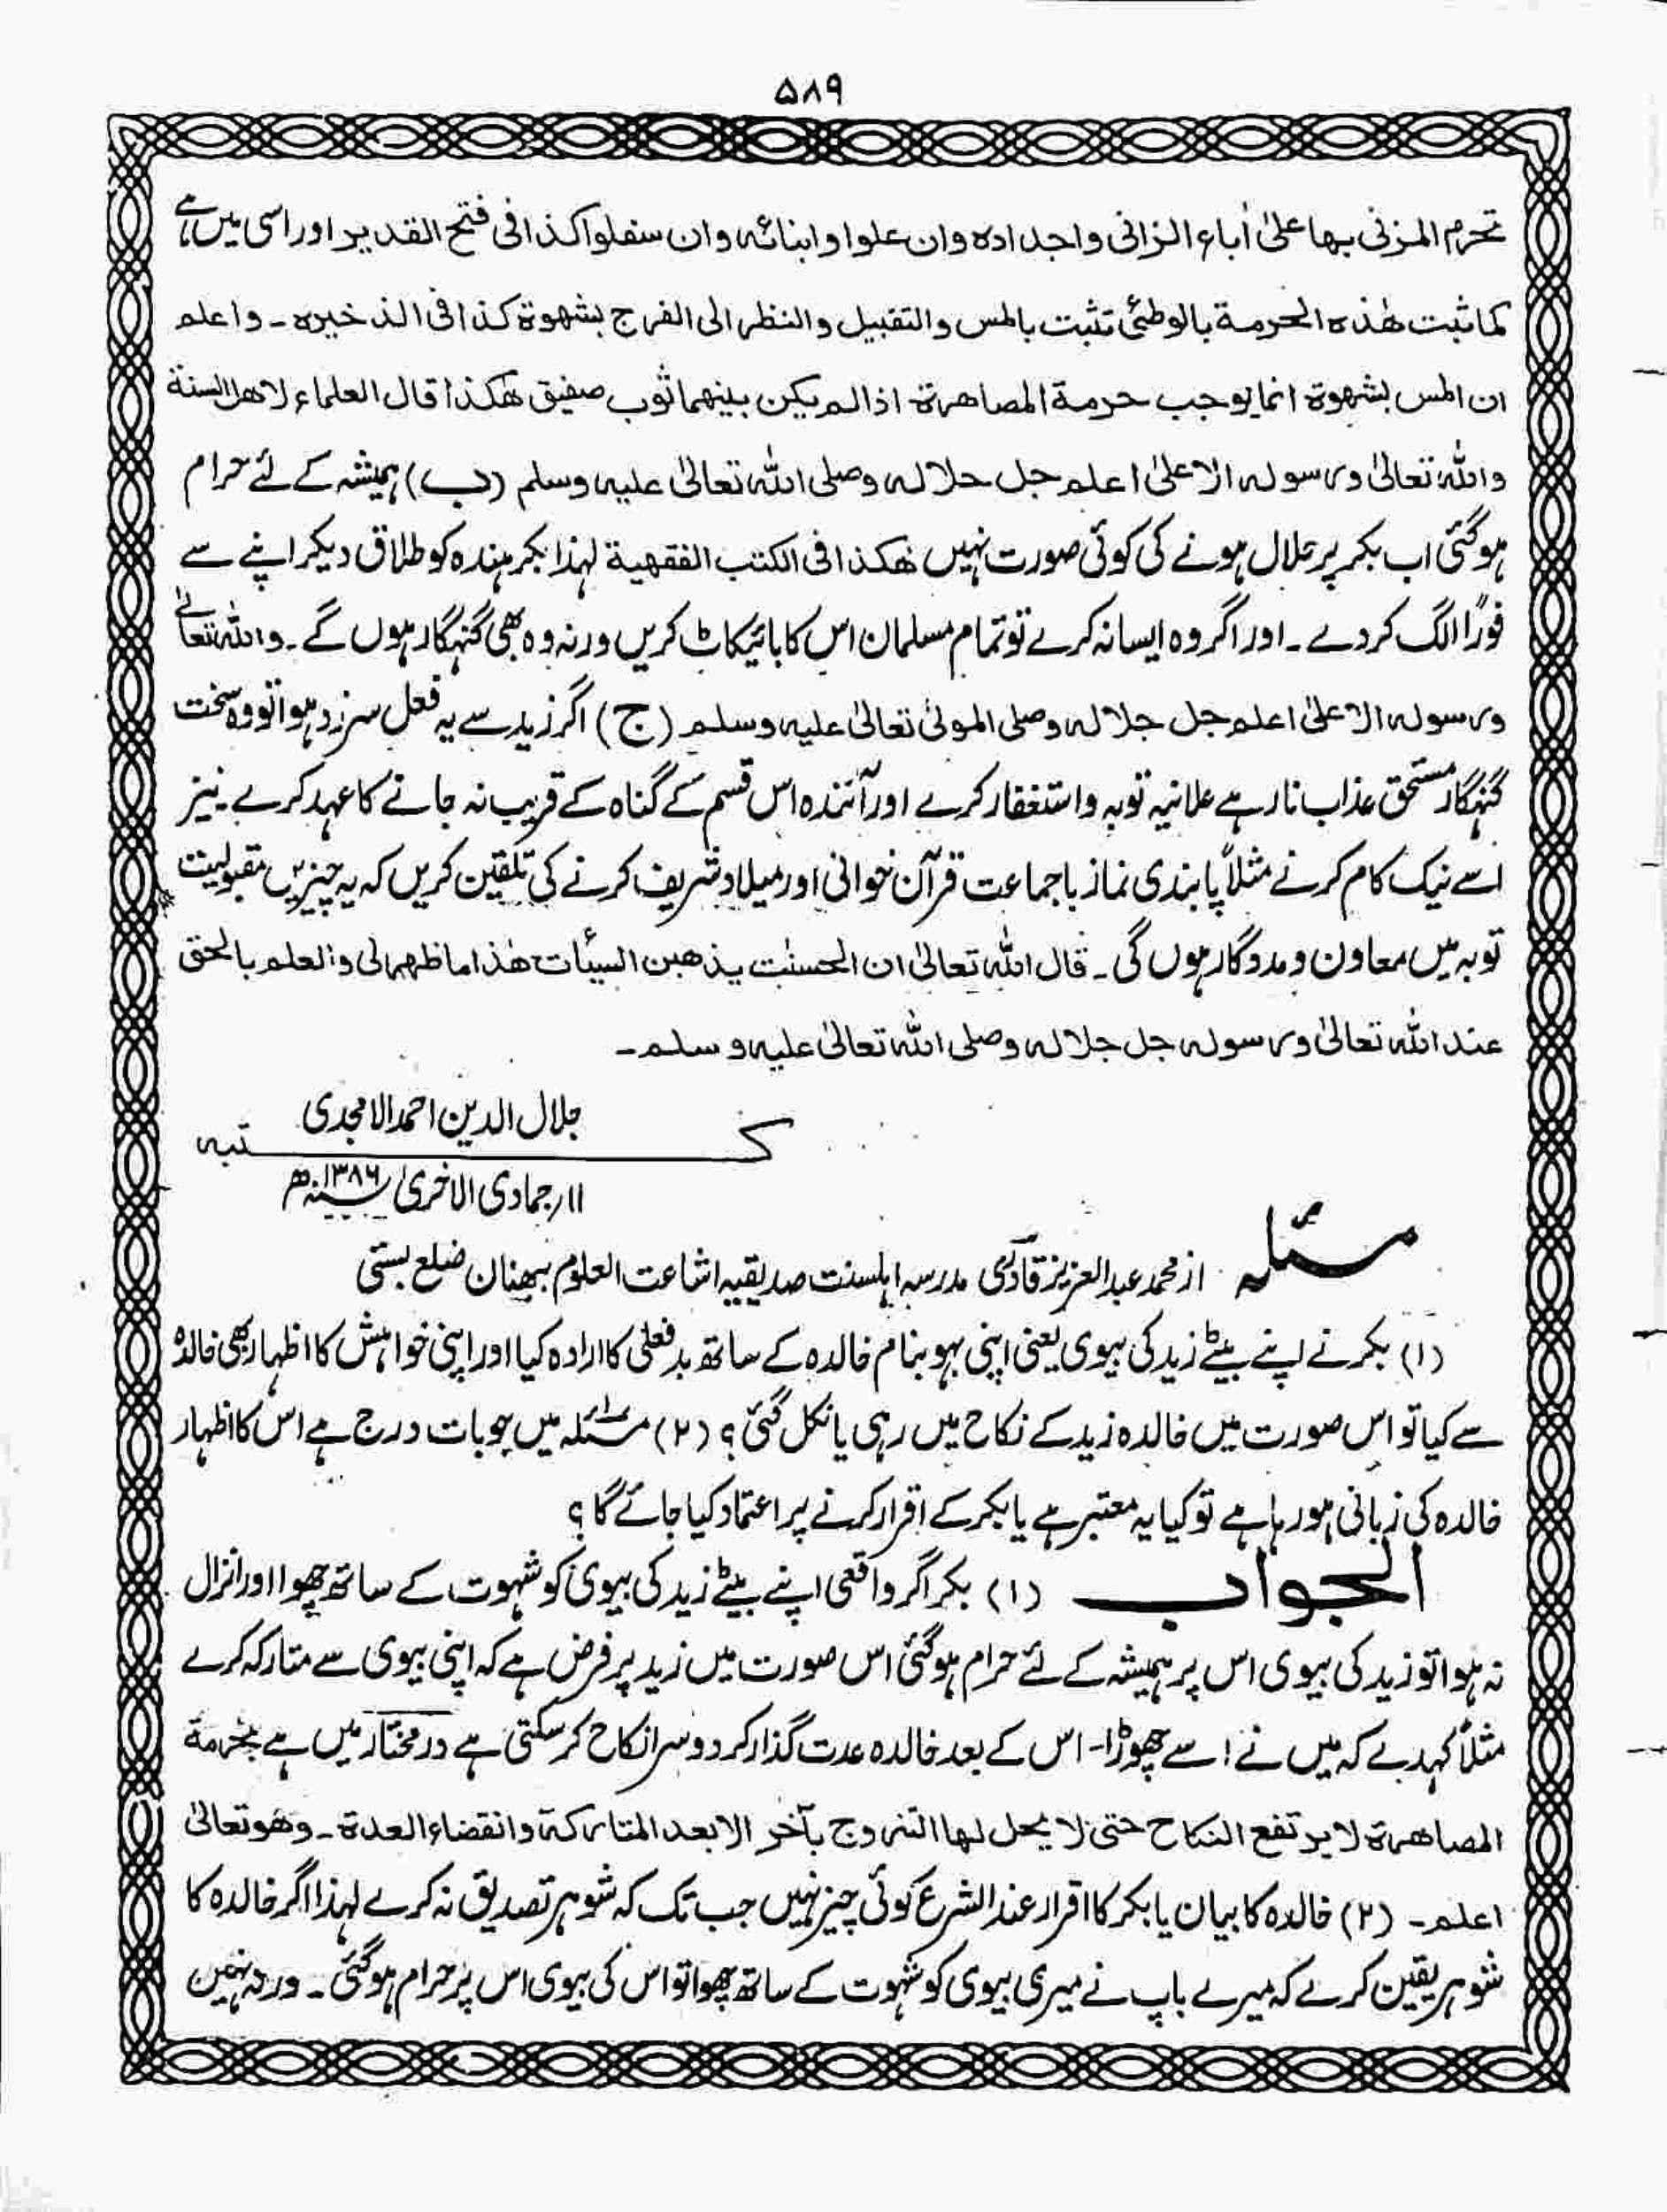 ۵۸۹
تحرم المزنی بہا علیٰ اٰباء الزانی واجدادہ وان علوا وابنائہ وان سفلوا کذا فی فتح القدیر اور اسی میں ہے
کما ثبت ھٰذہ الحرمۃ بالوطئی تثبت بالمس والتقبیل والنظر الی الفرج بشھوۃ کذا فی الذخیرہ ۔ واعلم
ان المس بشھوۃ انما یوجب حرمۃ المصاھرۃ اذا لم یکن بینھما ثوب صفیق ھٰکذا قال العلماء لاھل السنۃ
واللہ تعالیٰ ورسولہ الاعلیٰ اعلم جل جلالہ وصلی اللہ تعالیٰ علیہ وسلم (ب) ہمیشہ کے لئے حرام
ہوگئی اب بکر پر حلال ہونے کی کوئی صورت نہیں ھٰکذا فی الکتب الفقھیۃ لہٰذا بکر ہندہ کو طلاق دیکر اپنے سے
فوراً الگ کردے ۔ اور اگر وہ ایسا نہ کرے تو تمام مسلمان اس کا بائیکاٹ کریں ورنہ وہ بھی گنہگار ہوں گے ۔ واللہ تعالیٰ
ورسولہ الاعلیٰ اعلم جل جلالہ وصلی المولیٰ تعالیٰ علیہ وسلم (ج) اگر زید سے یہ فعل سرزد ہوا تو وہ سخت
گنہگار مستحق عذاب نار ہے علانیہ توبہ واستغفار کرے اور آئندہ اس قسم کے گناہ کے قریب نہ جانے کا عہد کرے ۔ نیز
اسے نیک کام کرنے مثلاً پابندی نماز باجماعت قرآن خوانی اور میلاد شریف کرنے کی تلقین کریں کہ یہ چیزیں مقبولیت
توبہ میں معاون ومددگار ہوں گی ۔ قال اللہ تعالیٰ ان الحسنٰت یذھبن السیئات ھٰذا ما ظھر لی والعلم بالحق
عند اللہ تعالیٰ ورسولہ جل جلالہ وصلی اللہ تعالیٰ علیہ وسلم ۔
جلال الدین احمد الامجدی
کتبہ
۱۱؍ جمادی الاخریٰ ۱۳۸۶ھ
مسئلہ از محمد عبدالعزیز قادری مدرسہ اہلسنت صدیقیہ اشاعت العلوم بھنان ضلع بستی
(۱) بکر نے اپنے بیٹے زید کی بیوی یعنی اپنی بہو بنام خالدہ کے ساتھ بدفعلی کا ارادہ کیا اور اپنی خواہش کا اظہار بھی خالدہ
سے کیا تو اس صورت میں خالدہ زید کے نکاح میں رہی یا نکل گئی ؟ (۲) مسئلہ ۱ میں جو بات درج ہے اس کا اظہار
خالدہ کی زبانی ہو رہا ہے تو کیا یہ معتبر ہے یا بکر کے اقرار کرنے پر اعتماد کیا جائے گا ؟
الجواب (۱) بکر اگر واقعی اپنے بیٹے زید کی بیوی کو شہوت کے ساتھ چھوا اور انزال
نہ ہوا تو زید کی بیوی اس پر ہمیشہ کے لئے حرام ہوگئی اس صورت میں زید پر فرض ہے کہ اپنی بیوی سے متارکہ کرے
مثلاً کہدے کہ میں نے اسے چھوڑا ۔ اس کے بعد خالدہ عدت گذار کر دوسرا نکاح کرسکتی ہے درمختار میں ہے بحرمۃ
المصاھرۃ لا یرتفع النکاح حتیٰ لا یحل لھا التزوج بآخر الا بعد المتارکۃ وانقضاء العدۃ ۔ وھو تعالیٰ
اعلم ۔ (۲) خالدہ کا بیان یا بکر کا اقرار عند الشرع کوئی چیز نہیں جب تک کہ شوہر تصدیق نہ کرے لہٰذا اگر خالدہ کا
شوہر یقین کرے کہ میرے باپ نے میری بیوی کو شہوت کے ساتھ چھوا تو اس کی بیوی اس پر حرام ہوگئی ۔ ورنہ نہیں